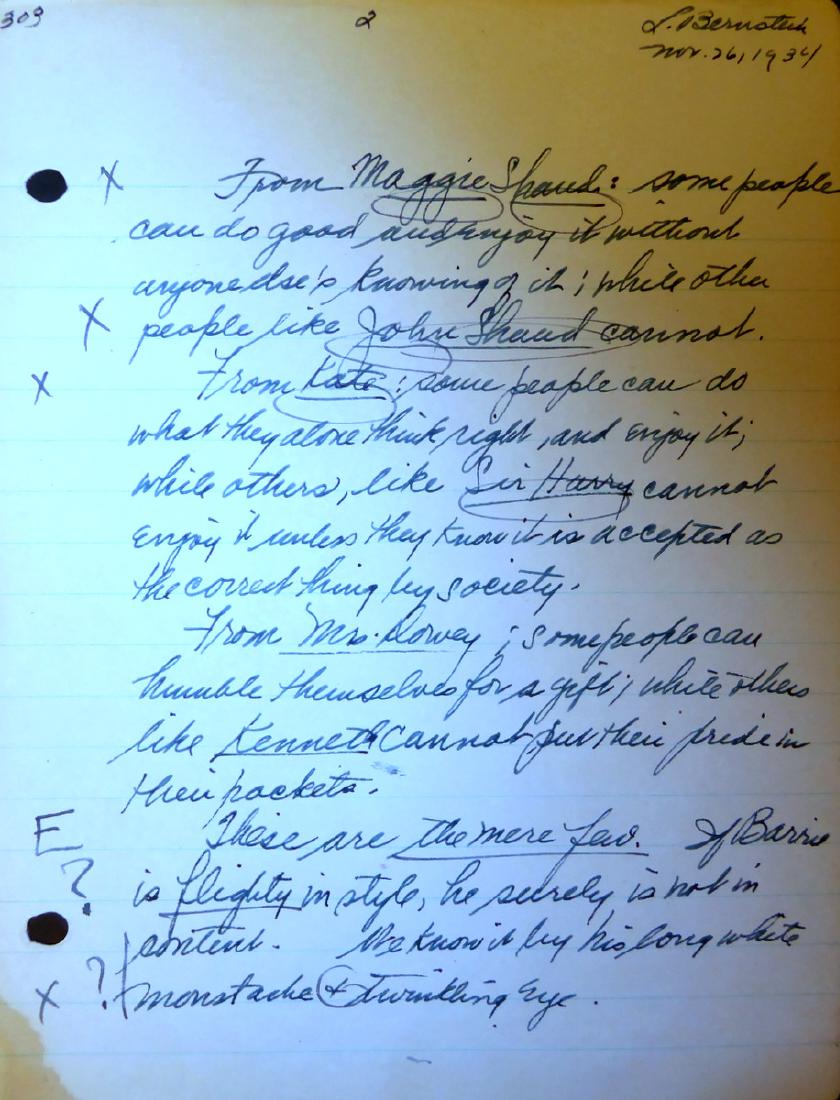 309 2 L. Bernstein
Nov. 26, 1934
X From Maggie Shand: some people
can do good and enjoy it without
anyone else's knowing of it; while other
X people like John Shand cannot.
X From Kate: some people can do
what they alone think right, and enjoy it;
while others, like Sir Harry cannot
enjoy it unless they know it is accepted as
the correct thing by society.
From Mrs. Dowey; some people can
humble themselves for a gift; while others
like Kenneth cannot put their pride in
their pockets.
E These are the mere few. If Barrie
? is flighty in style, he surely is not in
content. We know it by his long white
X ? moustache & twinkling eye.